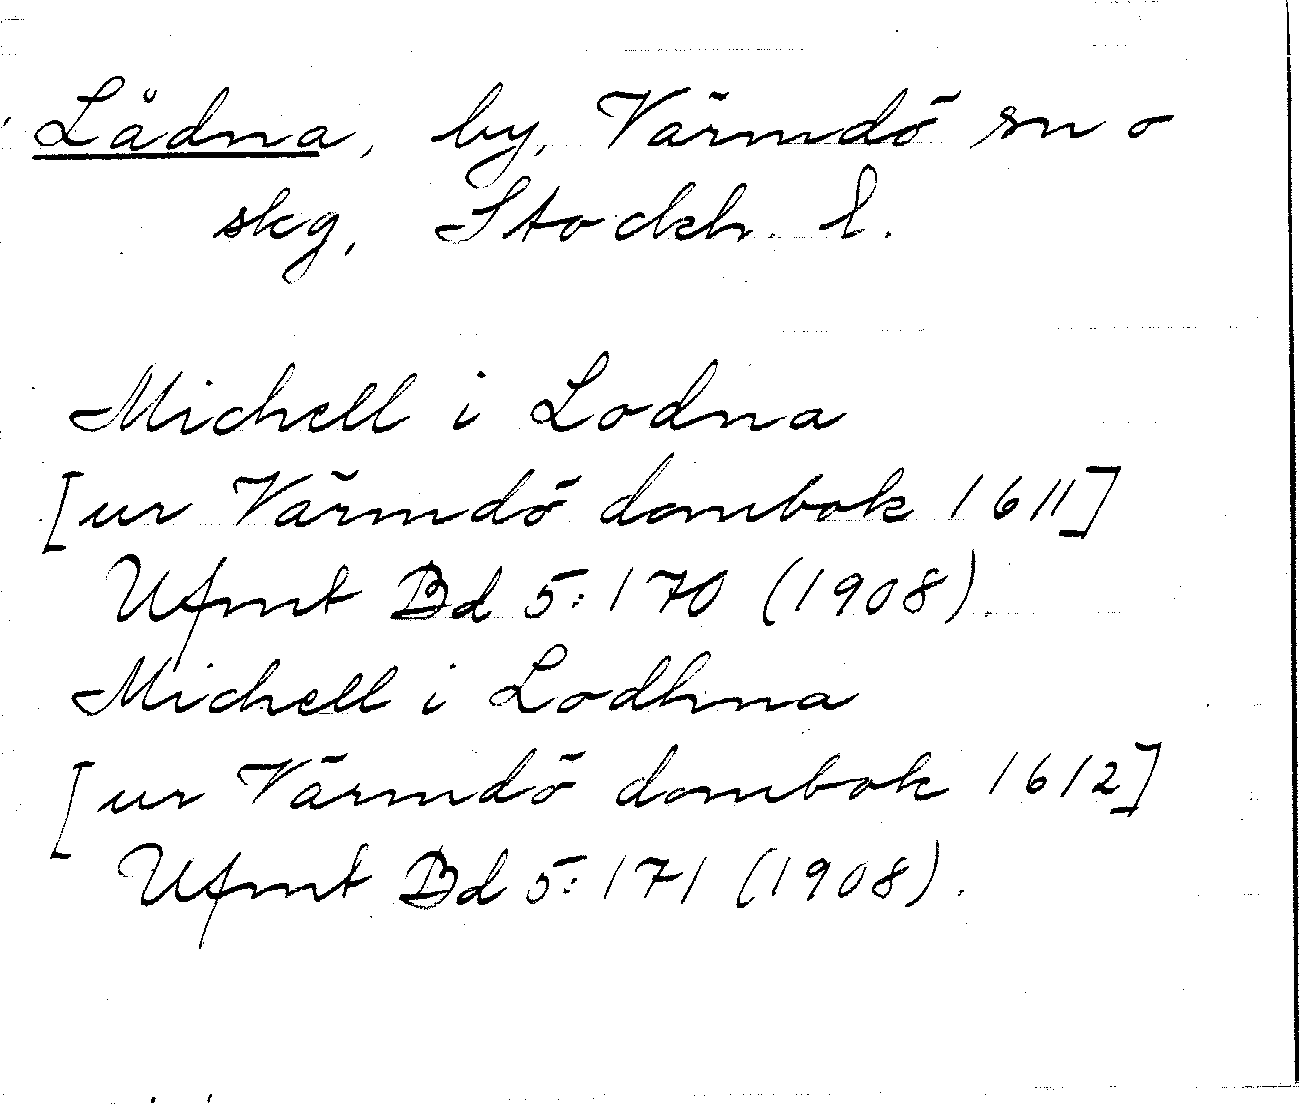 Lådna, by, Värmdö sn o
skg, Stockh. l.
Michell i Lodna
[ur Värmdö dombok 1611]
Ufmt Bd 5:170 (1908).
Michell i Lodhna
[ur Värmdö dombok 1612]
Ufmt Bd 5:171 (1908).